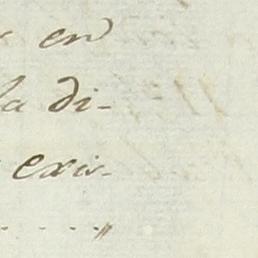 en
la di-
exis-
. . . . . . „